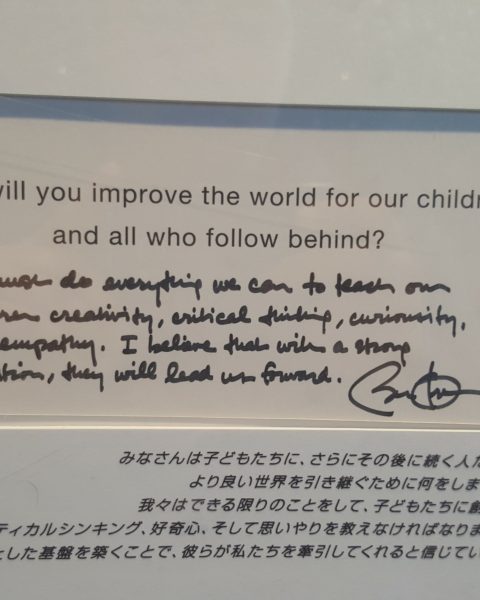 will you improve the world for our childr
and all who follow behind?
must do everything we can to teach our
ren creativity, critical thinking, curiousity,
empathy. I believe that with a strong
tion, they will lead us forward.
みなさんは子どもたちに、さらにその後に続く人た
より良い世界を引き継ぐために何をしま
我々はできる限りのことをして、子どもたちに創
ティカルシンキング、好奇心、そして思いやりを教えなければなりま
とした基盤を築くことで、彼らが私たちを牽引してくれると信じてい